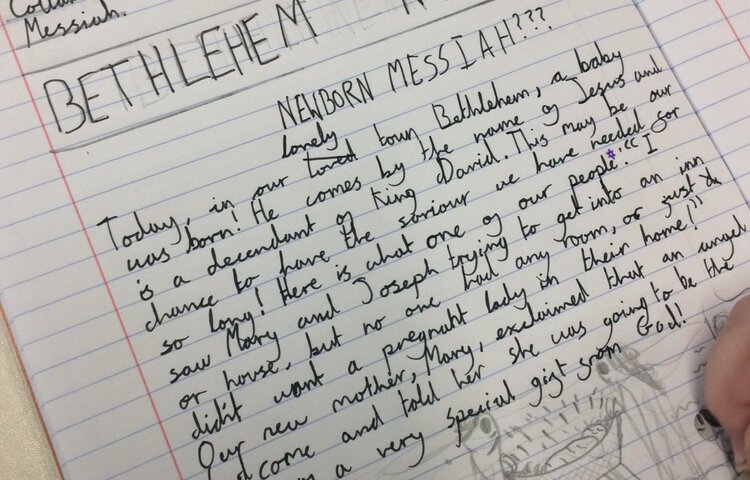 Messiah.
BETHLEHEM
NEWBORN MESSIAH???
lonely
Today, in our loved town, Bethlehem, a baby
was born! He comes by the name of Jesus and
is a decendant of King David. This may be our
chance to have the saviour we have needed for
so long! Here is what one of our people: "I
saw Mary and Joseph trying to get into an inn
or house, but no one had any room, or just
didn't want a pregnant lady in their home!"
Our new mother, Mary, exclaimed that an angel
come and told her she was going to be the
a very special gift from God!